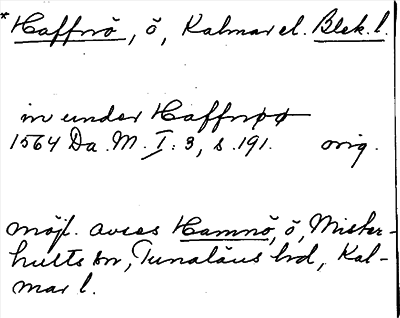 *Haffnö, ö, Kalmar el. Blek. l.
in under Haffnøø
1564 Da. M. I: 3, s. 191. orig.
möjl. avses Hamnö, ö, Mister-
hults sn, Tunaläns hd, Kal-
mar l.